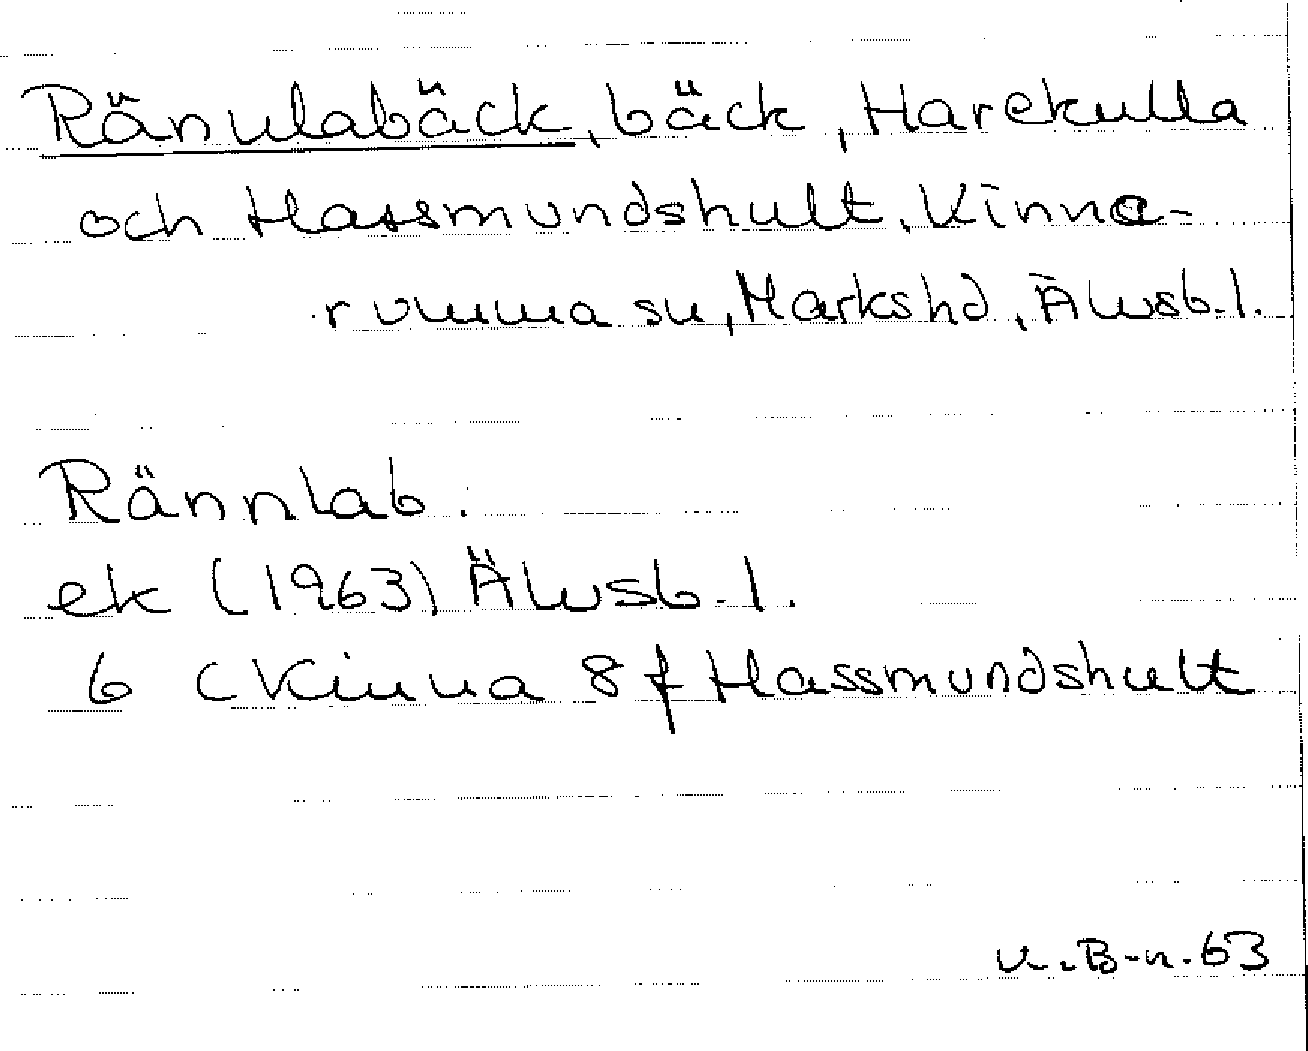 Rännlabäck, bäck, Harekulla
och Hassmundshult, Kinna-
rumma sn, Markshd, Älvsb.l.
Rännlab.
ek (1963) Älvsb.l.
6 C Kinna 8 f Hassmundshult
K.B-n.63